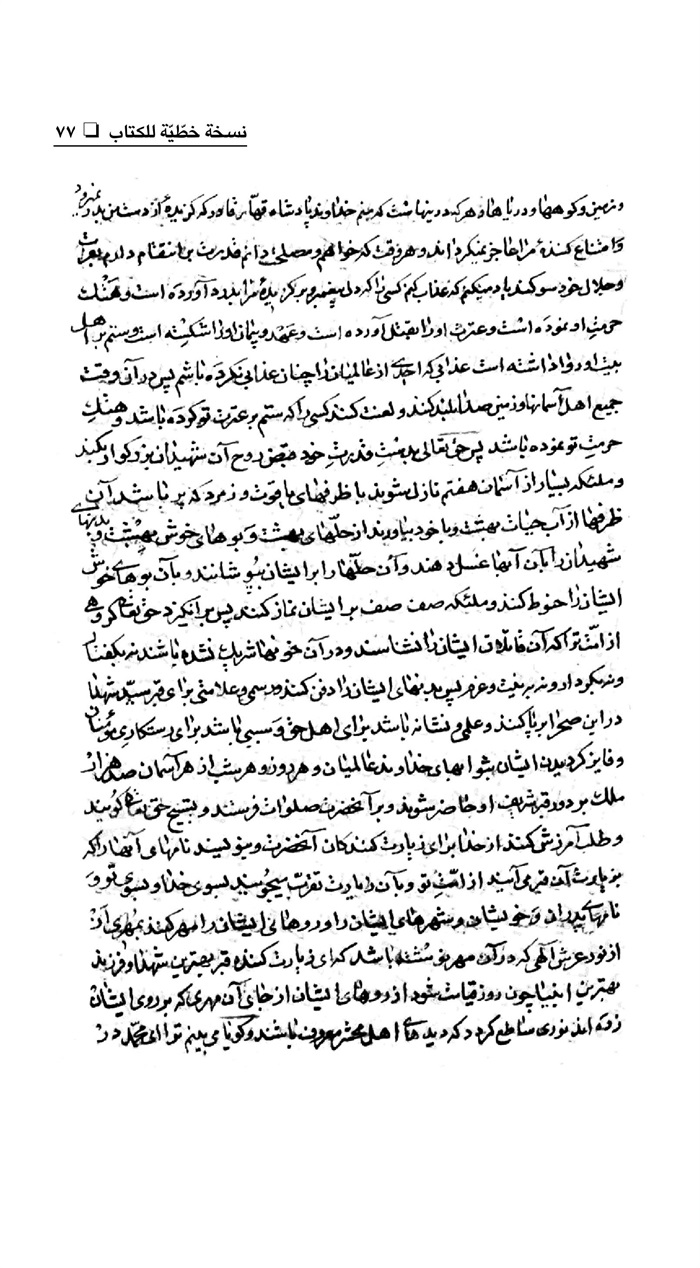 نسخة خطّيّة للكتاب ❏ ٧٧
و زمین و کوهها و دریاها و هر که در اینهاست که منم خداوند پادشاه قهار قادر که گریزنده از دست من بدر نمیرود
و امتناع کننده مرا عاجز نمیگرداند و هر وقت که خواهم و مصلحت دانم قدرت بر انتقام دارم بعزت
و جلال خود سوگند یاد میکنم که عذاب کنم کسی را که دل پیغمبر و برگزیده مرا بدرد آورده است و هتک
حرمت او نموده است و عترت او را بقتل آورده است و عهد و پیمان او را شکسته است و ستم بر اهل
بیت او روا داشته است عذابی که احدی از عالمیان را چنان عذابی نکرده باشم پس در آن وقت
جمیع اهل آسمانها و زمین صدا بلند کنند و لعنت کنند کسی را که ستم بر عترت تو کرده باشد و هتک
حرمت تو نموده باشد پس حق تعالی بدست قدرت خود قبض روح آن شهیدان بزرگوار بکند
و ملئکه بسیار از آسمان هفتم نازل شوند با ظرفهای یاقوت و زمرد که پر باشد آن
ظرفها از آب حیات بهشت و با خود بیاورند از حلّهای بهشت و بوهای خوش بهشت و بدنهای
شهیدان را بآن آبها غسل دهند و آن حلّها را بر ایشان بپوشانند و بآن بوهای خوش
ایشان را حنوط کنند و ملئکه صف صف بر ایشان نماز کنند پس برانگیزد حق تعالی گروهی
از امّت ترا که آن قاتلان ایشان را نشناسند و در آن خونها شریک نشده باشند نه بگفتار
و نه بکردار و نه به نیّت و عزم پس بدنهای ایشان را دفن کنند و رسمی و علامتی برای قبر سیّد شهدا
در این صحرا برپا کنند و علم و نشانه باشد برای اهل حق و سببی باشد برای رستگاری مؤمنان
و فایز گردیدن ایشان بثوابهای خداوند عالمیان و هر روز و هر شب از هر آسمان صد هزار
ملک بر دور قبر شریف او حاضر شوند و بر آنحضرت صلوات فرستند و تسبیح حق تعالی گویند
و طلب آمرزش کنند از خدا برای زیارت کنندگان آنحضرت و مینویسند نامهای آنها را که
بزیارت آن قبر می‌آیند از امّت تو و بآن زیارت تقرّب میجویند بسوی خدا و بسوی تو و
نامهای پدران و خویشان و شهرهای ایشان را و روهای ایشان را مهر کنند بمهری از
از نور عرش الهی که در آن مهر نوشته باشد که این زیارت کننده قبر بهترین شهدا و فرزند
بهترین انبیا چون روز قیامت شود از روهای ایشان از جای آن مهری که بر روی ایشان
زده‌اند نوری ساطع گردد که دیدهای اهل محشر باشند و گویا می‌بینم ترا ای محمّد در